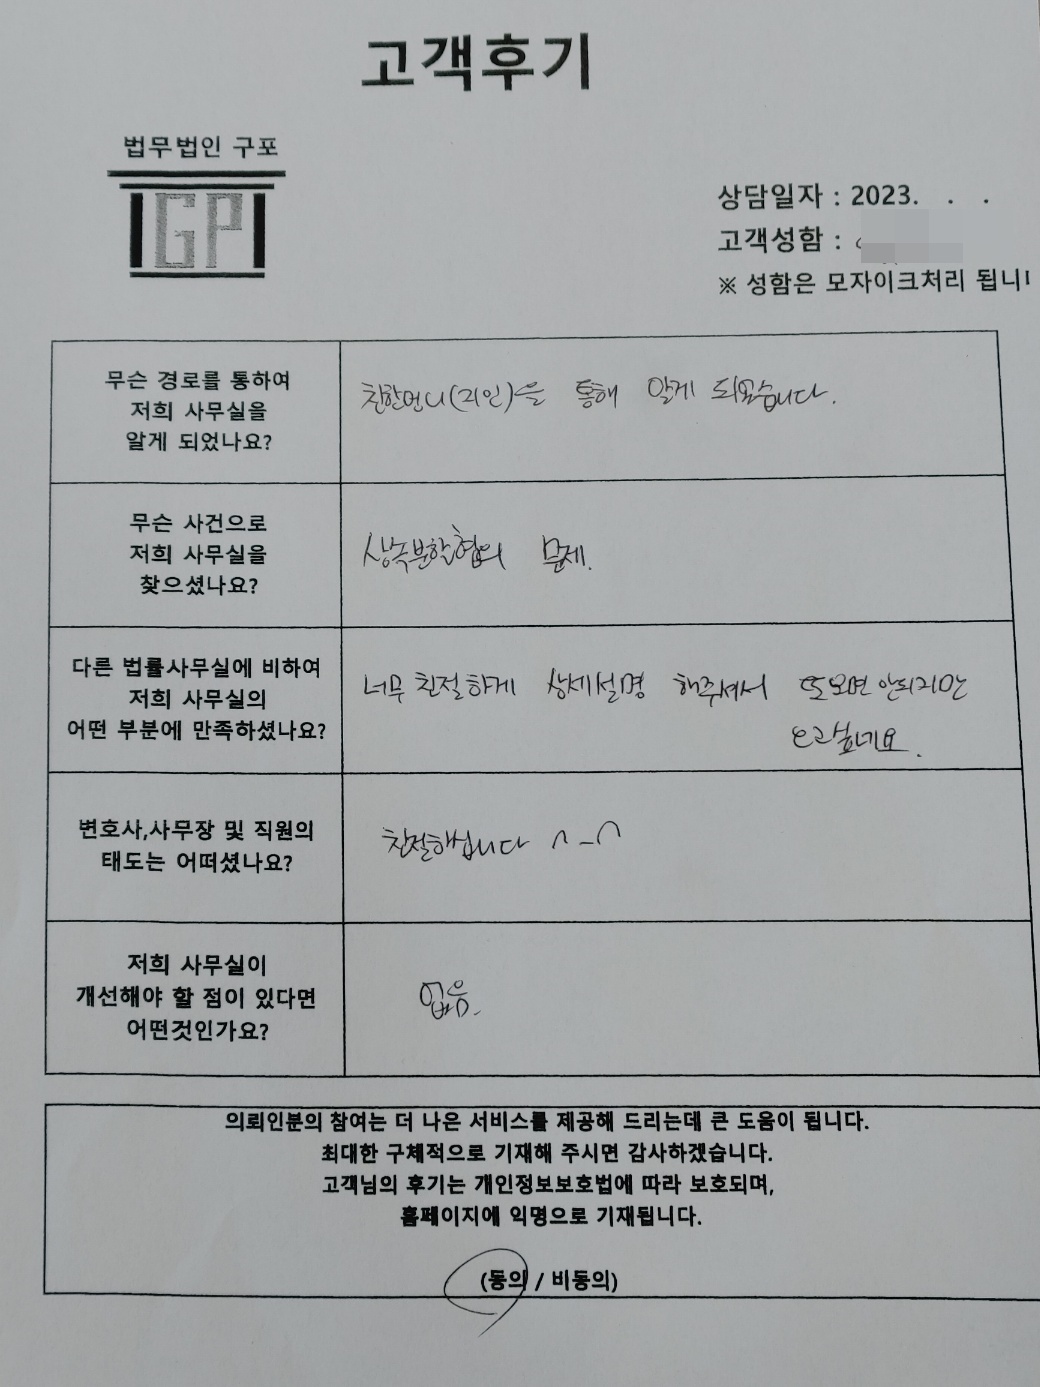 고객후기
법무법인 구포
GP
상담일자 : 2023. . .
고객성함 :
※ 성함은 모자이크처리 됩니
무슨 경로를 통하여
저희 사무실을
알게 되었나요?
친한언니(지인)을 통해 알게 되었습니다.
무슨 사건으로
저희 사무실을
찾으셨나요?
상속분할협의 문제.
다른 법률사무실에 비하여
저희 사무실의
어떤 부분에 만족하셨나요?
너무 친절하게 상세설명 해주셔서 또오면 안되지만
오고싶네요.
변호사,사무장 및 직원의
태도는 어떠셨나요?
친절하십니다 ^_^
저희 사무실이
개선해야 할 점이 있다면
어떤것인가요?
없음.
의뢰인분의 참여는 더 나은 서비스를 제공해 드리는데 큰 도움이 됩니다.
최대한 구체적으로 기재해 주시면 감사하겠습니다.
고객님의 후기는 개인정보보호법에 따라 보호되며,
홈페이지에 익명으로 기재됩니다.
(동의 / 비동의)